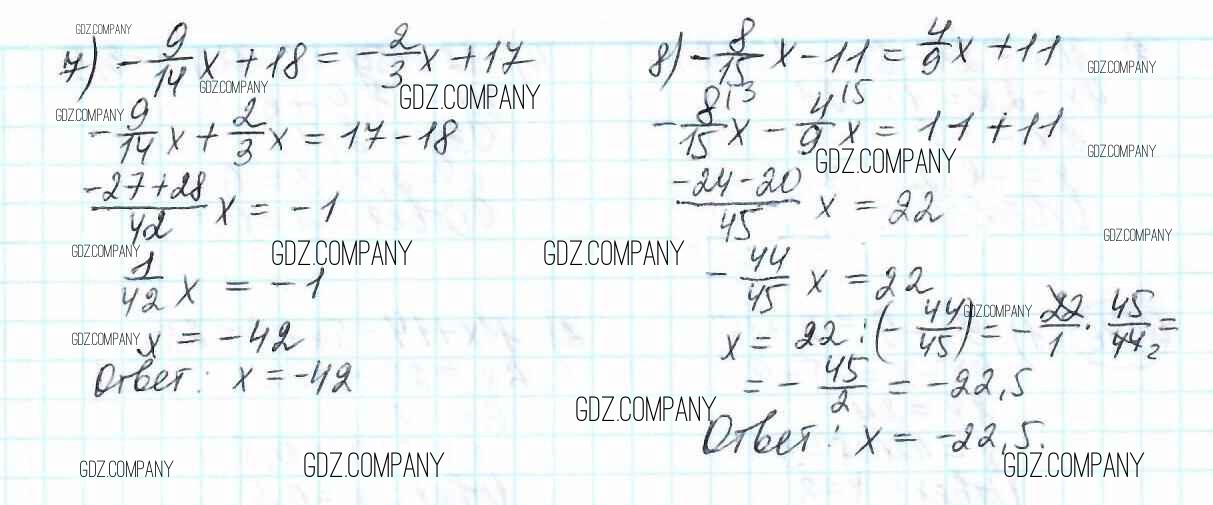 GDZ.COMPANY
7) -9/14 x + 18 = -2/3 x + 17
GDZ.COMPANY
GDZ.COMPANY
GDZ.COMPANY
-9/14 x + 2/3 x = 17 - 18
(-27+28)/42 x = -1
GDZ.COMPANY
GDZ.COMPANY
1/42 x = -1
GDZ.COMPANY
x = -42
Ответ: x = -42
GDZ.COMPANY
GDZ.COMPANY
8) -8/15 x - 11 = 4/9 x + 11
GDZ.COMPANY
-8/15 |3 x - 4/9 |5 x = 11 + 11
GDZ.COMPANY
GDZ.COMPANY
(-24-20)/45 x = 22
GDZ.COMPANY
GDZ.COMPANY
-44/45 x = 22
GDZ.COMPANY
x = 22 : (-44/45) = -22/1 · 45/44 2 =
= -45/2 = -22,5
GDZ.COMPANY
Ответ: x = -22,5.
GDZ.COMPANY